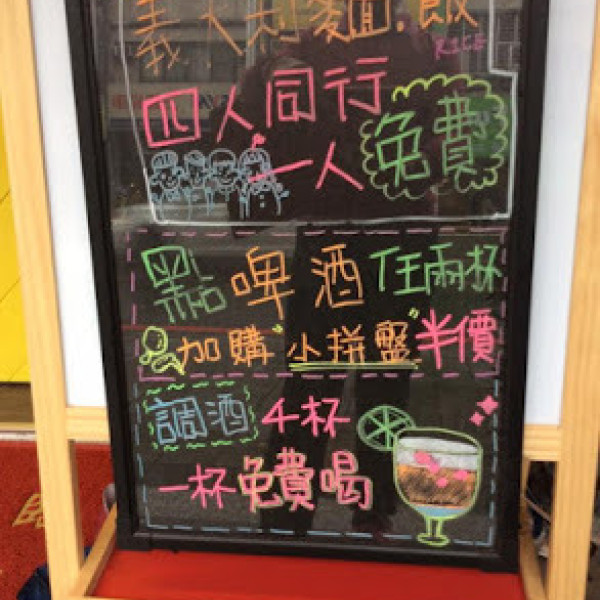 義大利麵.飯
RICE
四人同行
一人免費
點啤酒任兩杯
加購"小拼盤"半價
調酒4杯
一杯免費喝